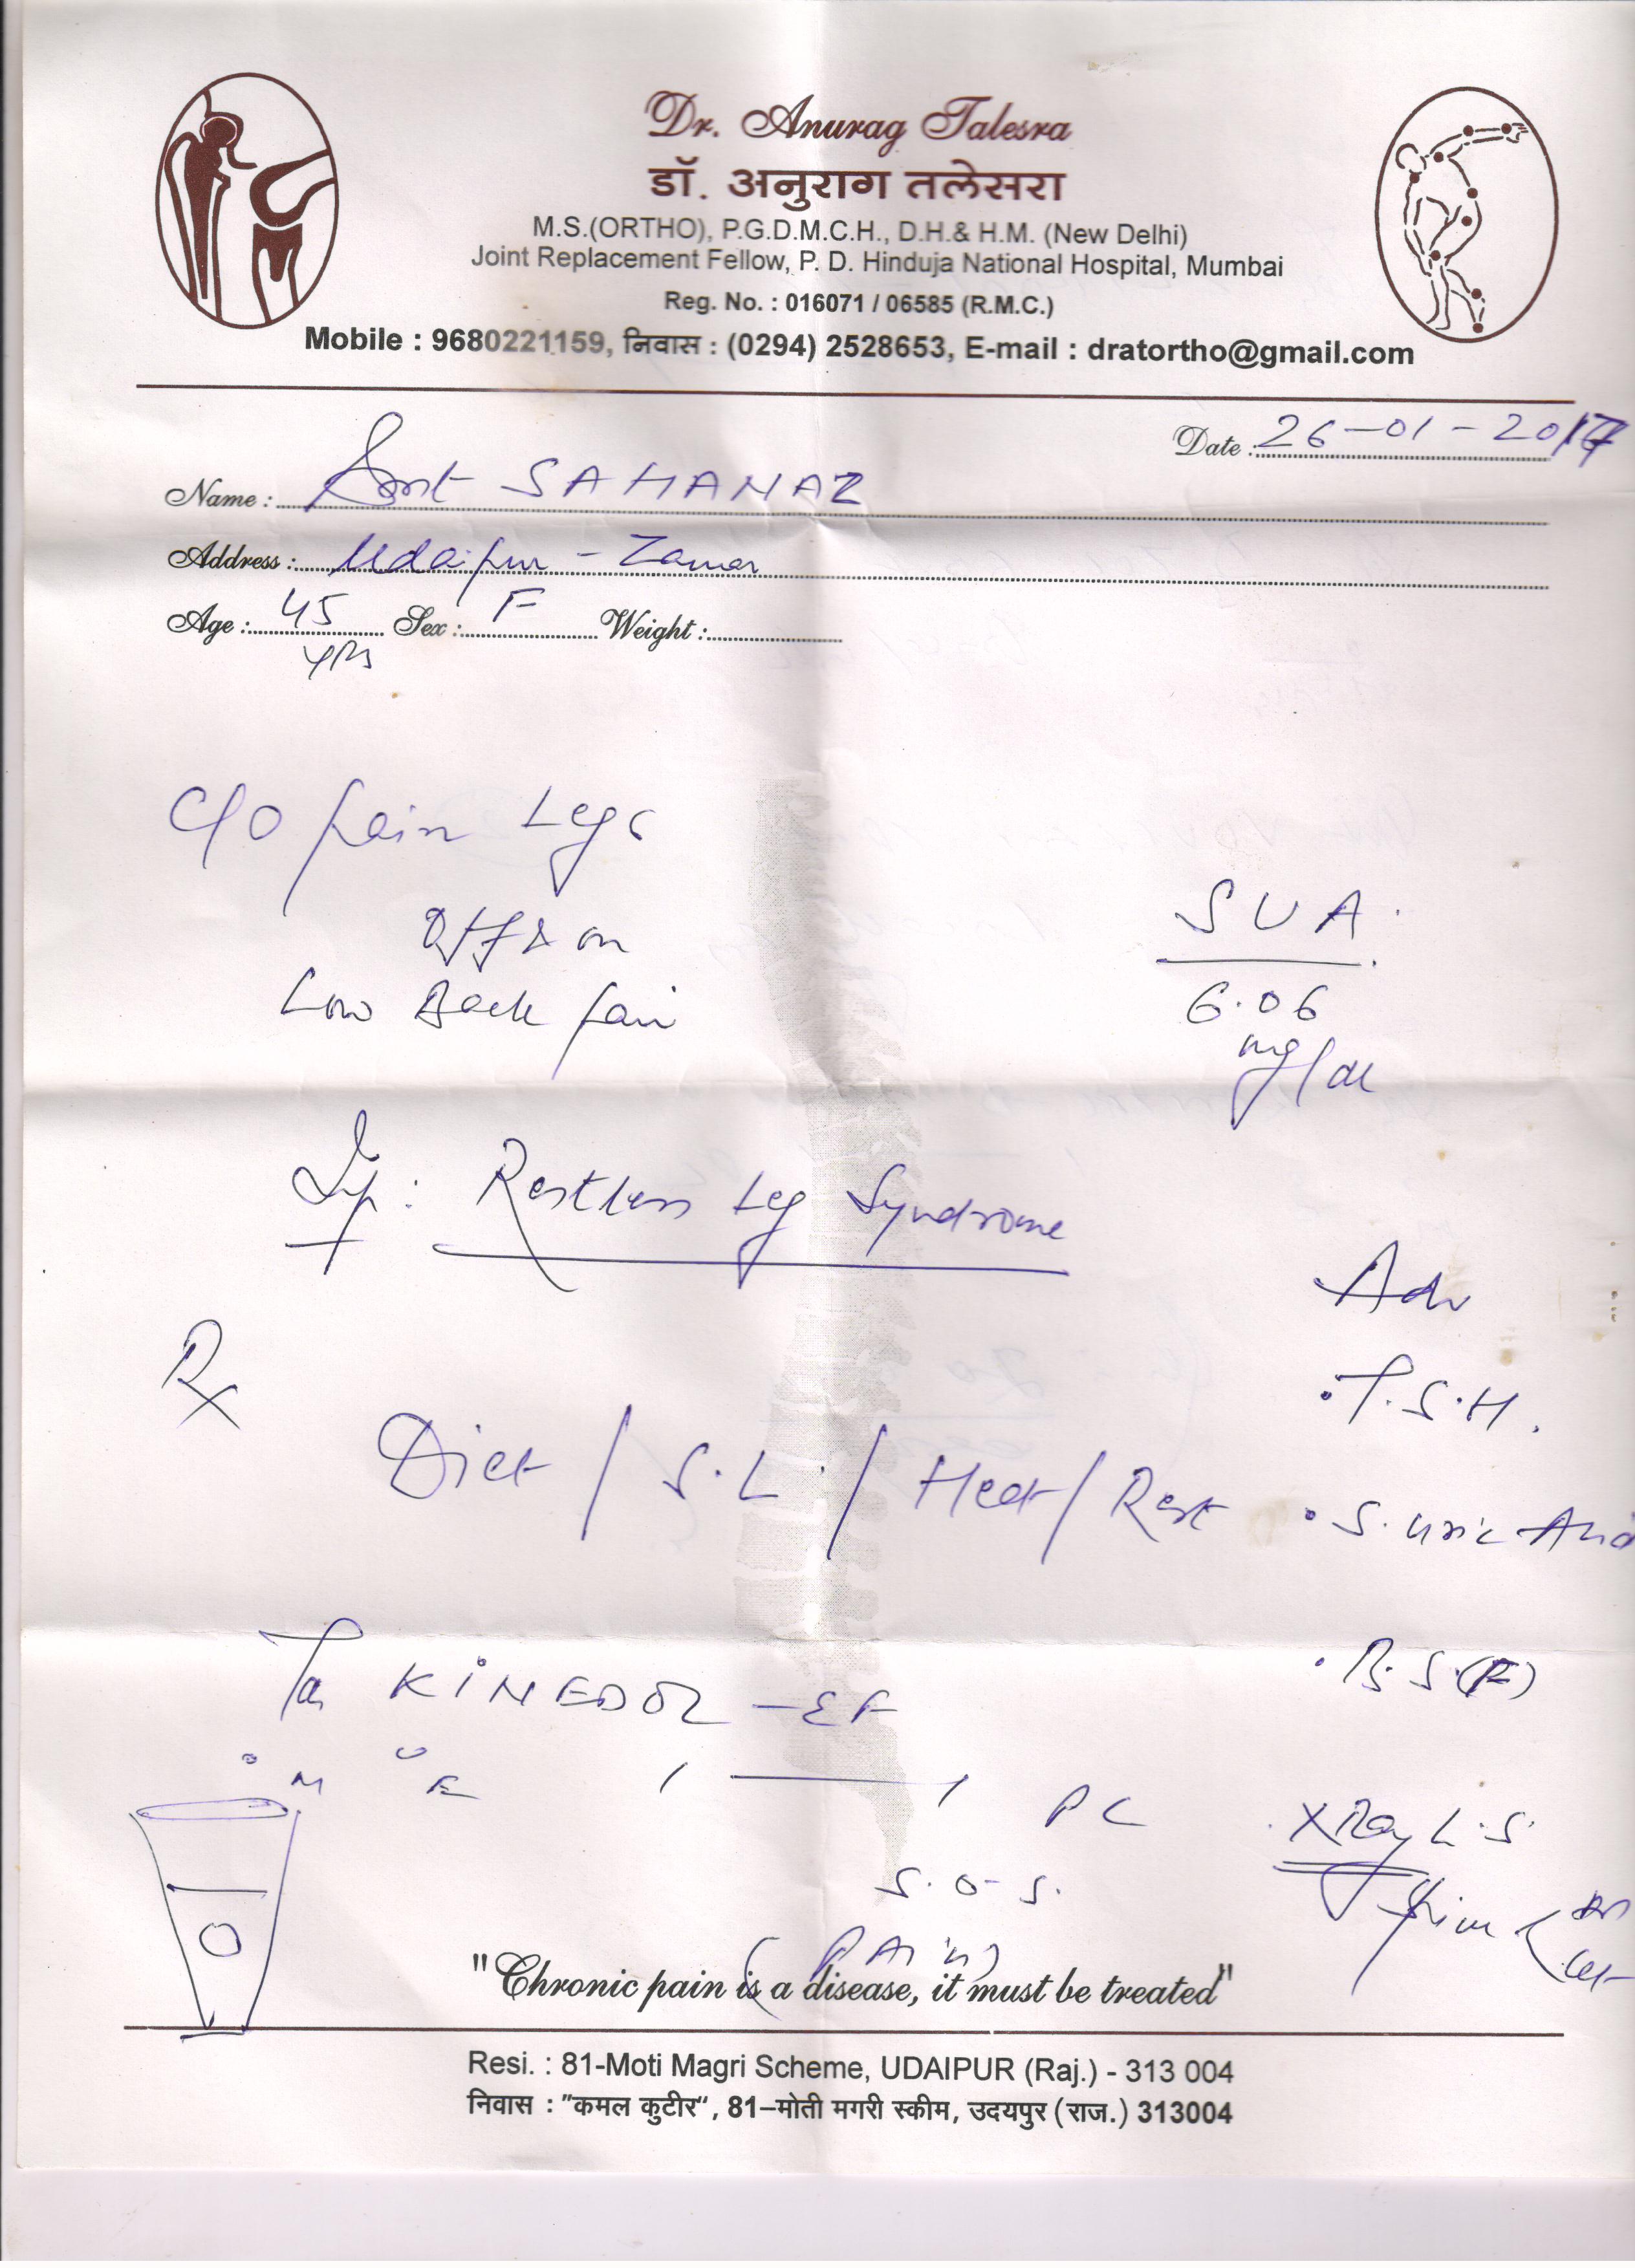 Dr. Anurag Talesra
डॉ. अनुराग तलेसरा
M.S.(ORTHO), P.G.D.M.C.H., D.H.& H.M. (New Delhi)
Joint Replacement Fellow, P. D. Hinduja National Hospital, Mumbai
Reg. No. : 016071 / 06585 (R.M.C.)
Mobile : 9680221159, निवास : (0294) 2528653, E-mail : dratortho@gmail.com
Date : 26-01-2017
Name : Smt SAHANAZ
Address : Udaipur - Zawar
Age : 45 Sex : F Weight :
yrs
C/O pain Legs
Off & on
Low Back pain
SUA
6.06
mg/dl
Imp : Restless Leg Syndrome
Adv
Rx
• T.S.H.
Diet / S.L. / Heat / Rest
• S. Uric Acid
Ta KINEDOL - EF
• B.S.(F)
M E
1 — 1 PC
X Ray L.S.
Spine
AP
Lat
S.O.S.
(PAIN)
"Chronic pain is a disease, it must be treated"
Resi. : 81-Moti Magri Scheme, UDAIPUR (Raj.) - 313 004
निवास : "कमल कुटीर", 81–मोती मगरी स्कीम, उदयपुर (राज.) 313004